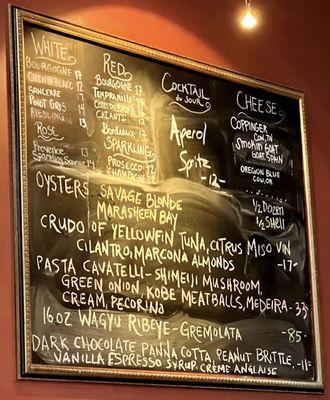 WHITE
BOURGOGNE
CHENIN BLANC
SANCERRE
PINOT GRIS
RIESLING
ROSÉ
PROVENCE
SPARKLING
RED
BOURGOGNE
TEMPRANILLO
CHIANTI
BORDEAUX
SPARKLING
PROSECCO
CHAMPAGNE
COCKTAIL
du JOUR
Aperol
Spritz
-12-
CHEESE
COPPINGER
COW, TN
GOAT SPAIN
OREGON BLUE
COW, OR
OYSTERS SAVAGE BLONDE 1/2 DOZEN
MARASHEEN BAY 1/2 SHELL
CRUDO OF YELLOWFIN TUNA, CITRUS MISO VIN
CILANTRO, MARCONA ALMONDS -17-
PASTA CAVATELLI - SHIMEJI MUSHROOM,
GREEN ONION, KOBE MEATBALLS, MEDEIRA -
CREAM, PECORINO
16 OZ WAGYU RIBEYE - GREMOLATA -85-
DARK CHOCOLATE PANNA COTTA, PEANUT BRITTLE, -11-
VANILLA ESPRESSO SYRUP CRÈME ANGLAISE